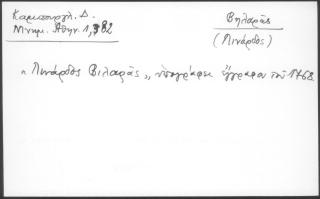 Καμπούρογλ. Δ.
Μνημ. Αθην. 1, 382
Βηλαρᾶς
(Λινάρδος)
"Λινάρδος Βιλαρᾶς„ ὑπογράφει ἔγγραφον τοῦ 1768